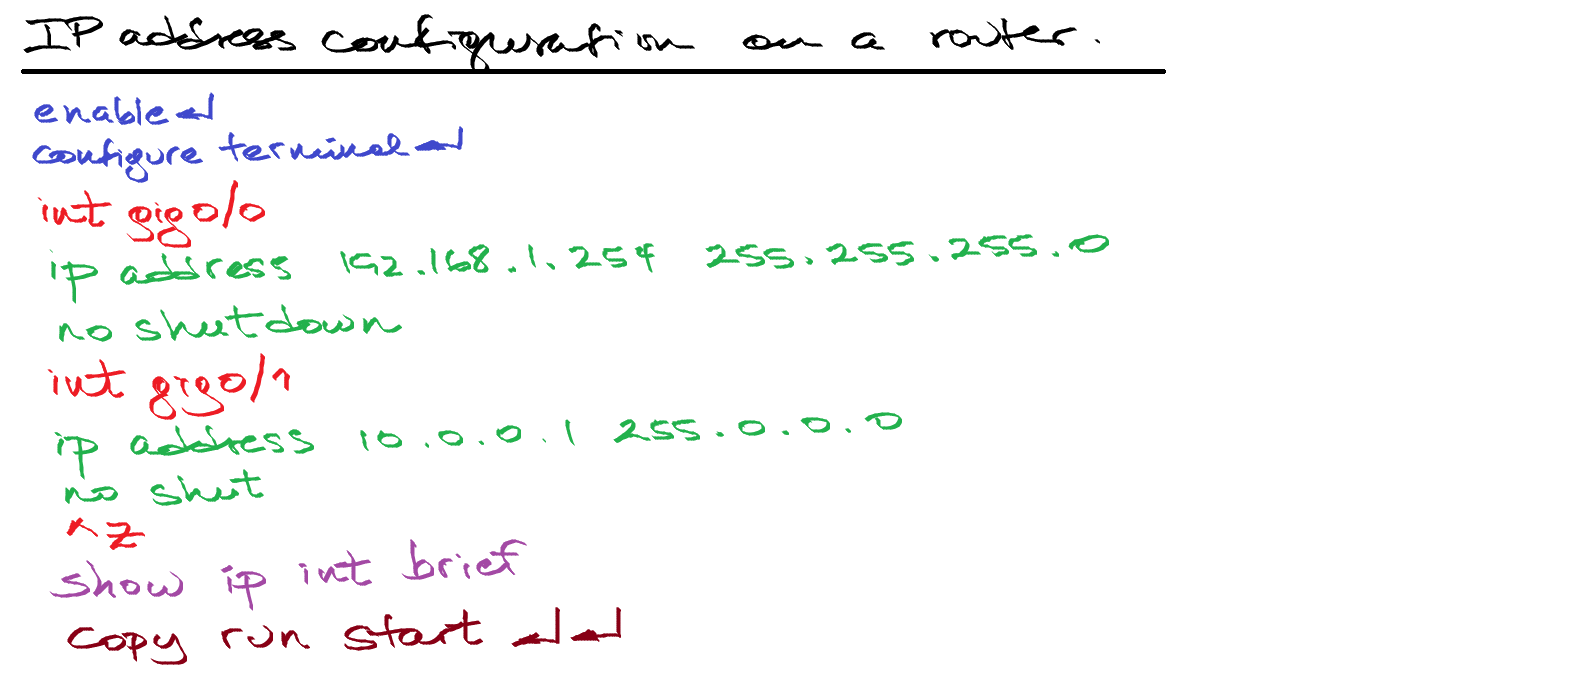 IP address configuration on a router.
enable↵
configure terminal↵
int gig0/0
ip address 192.168.1.254 255.255.255.0
no shutdown
int gig0/1
ip address 10.0.0.1 255.0.0.0
no shut
^Z
show ip int brief
copy run start ↵↵